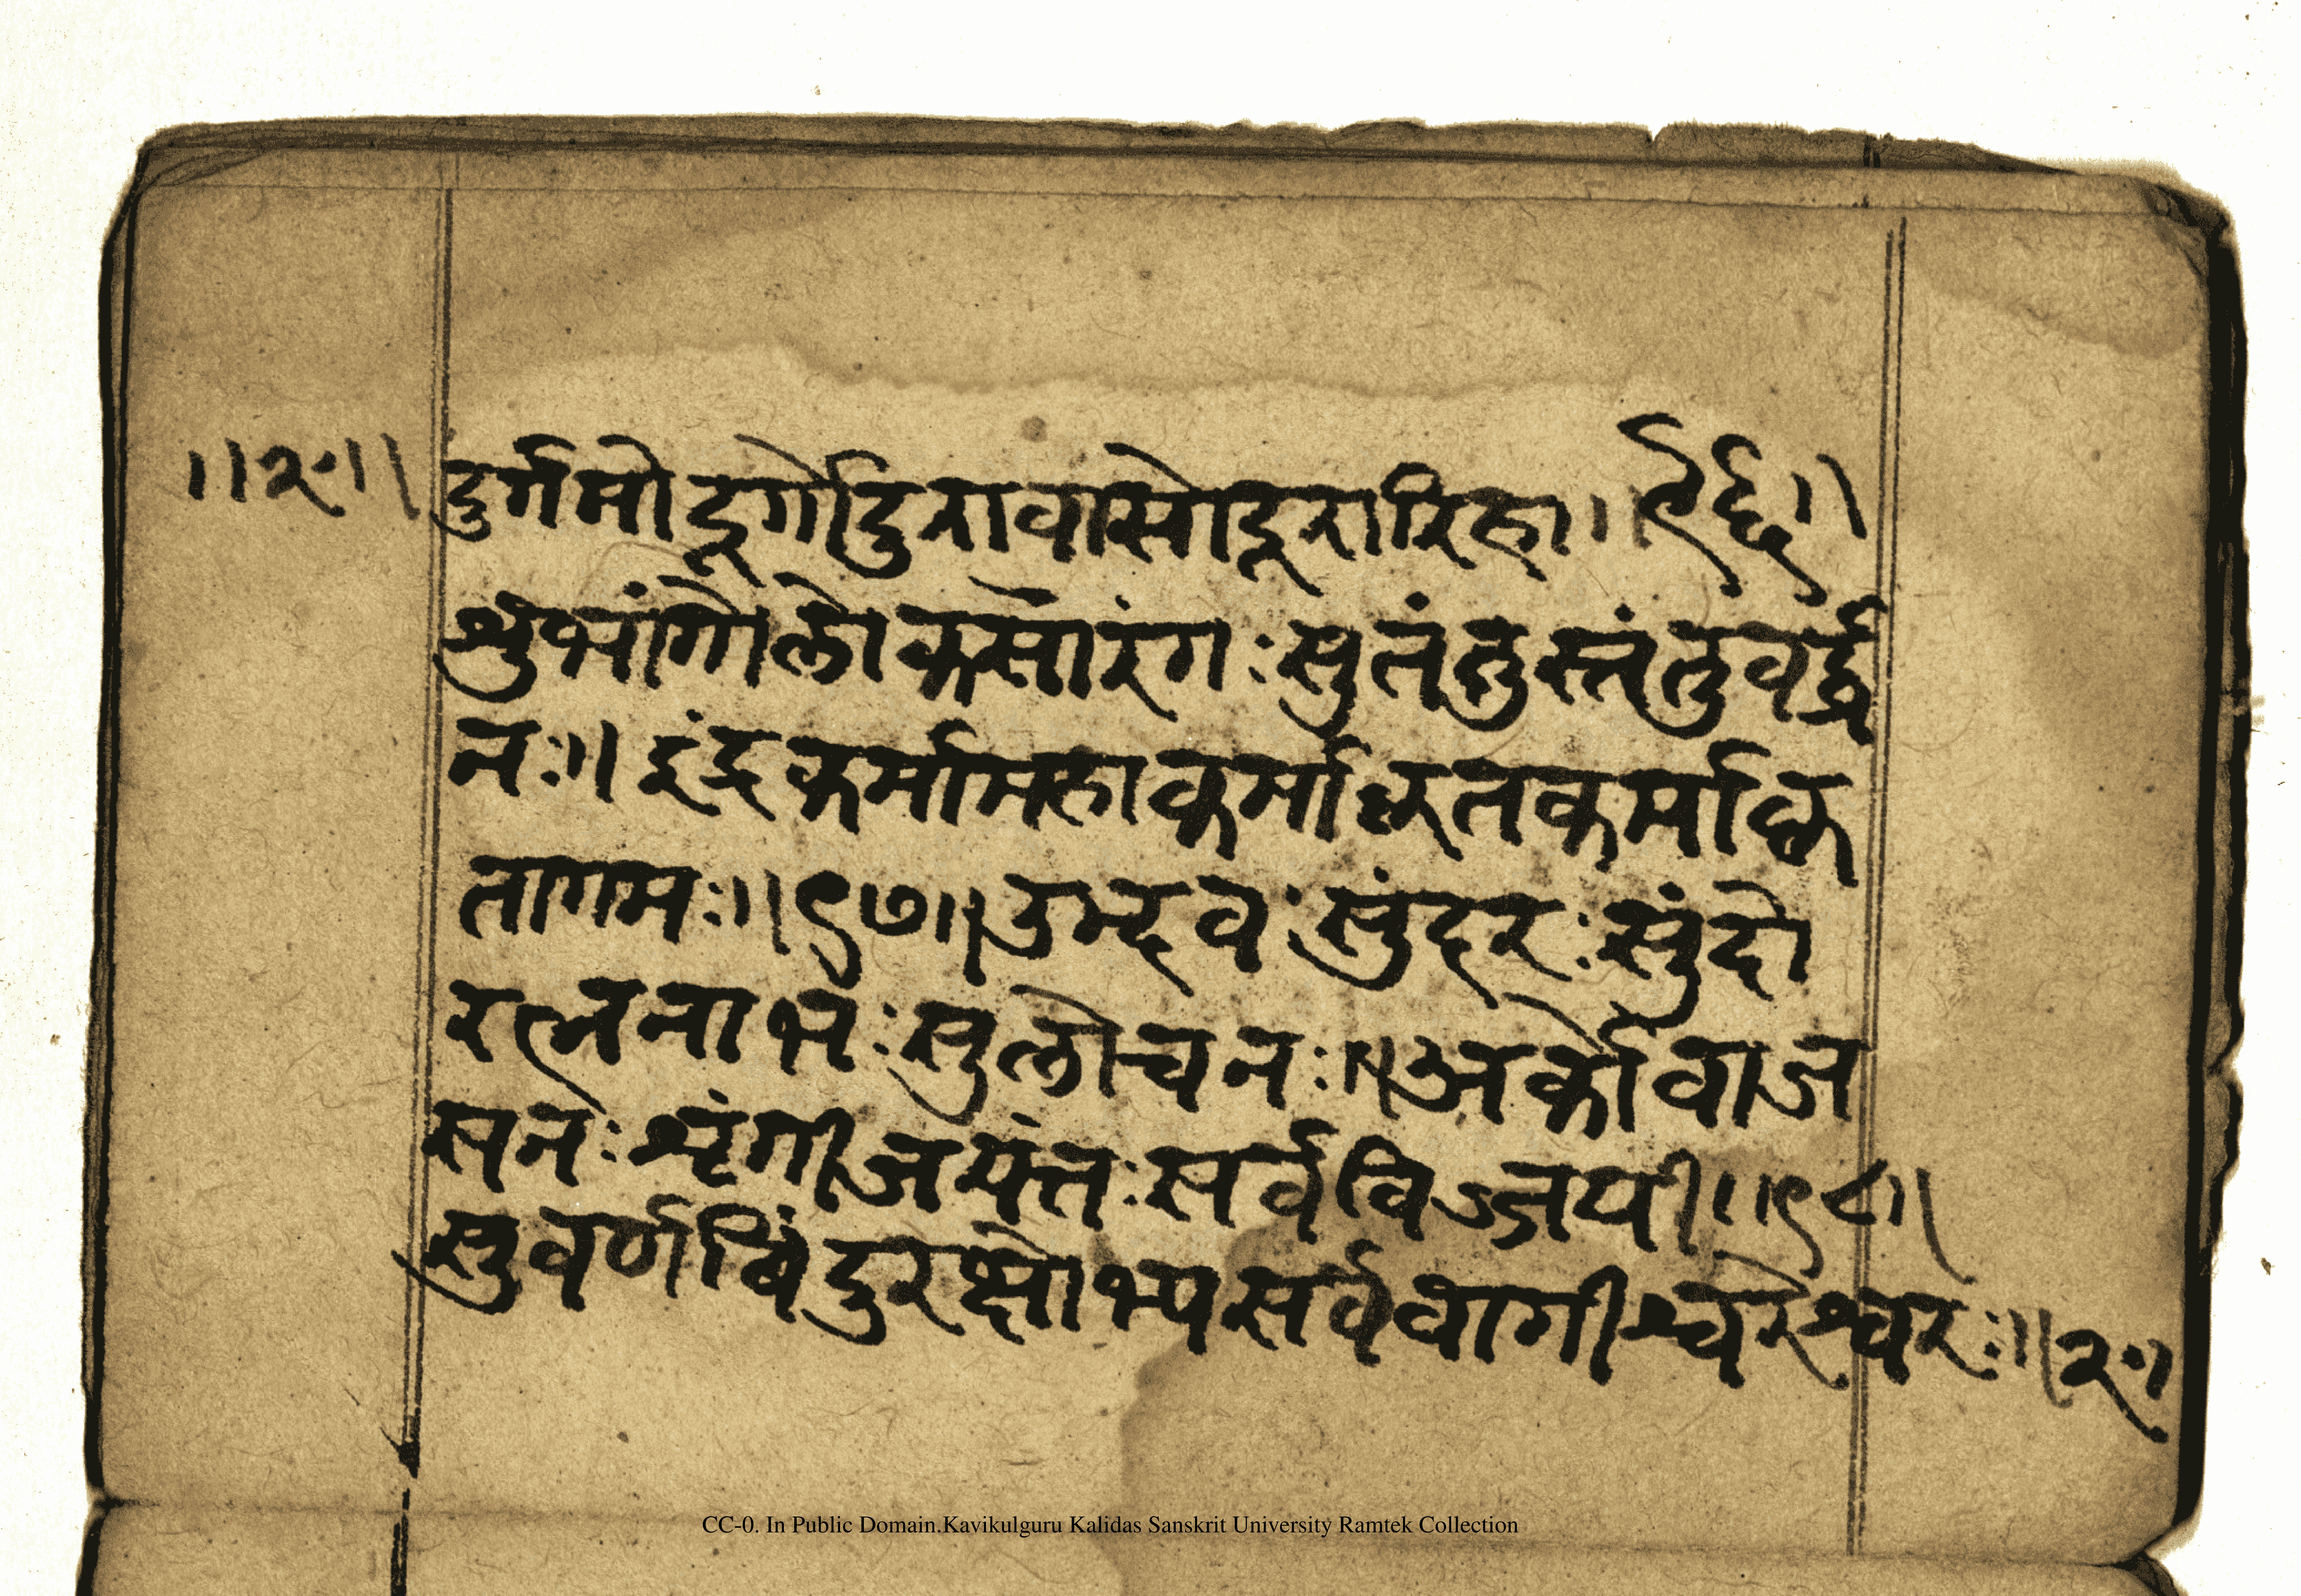 ॥२॥ दुर्गमो दूर्गो दुरावासो दूरारिहा॥९६॥
शुभांगो लोकसारंगः सुतंतुस्तंतुवर्द्ध
नः॥ इंद्रकर्मा महाकर्मा कृतकर्मा कृ
तागमः॥९७॥ उद्भवः सुंदरः सुंदो
रत्ननाभः सुलोचनः॥ अर्को वाज
सनः शृंगी जयंतः सर्वविज्जयी॥९८॥
सुवर्णबिंदुरक्षोभ्य सर्ववागीश्वरेश्वरः॥२॥
CC-0. In Public Domain.Kavikulguru Kalidas Sanskrit University Ramtek Collection